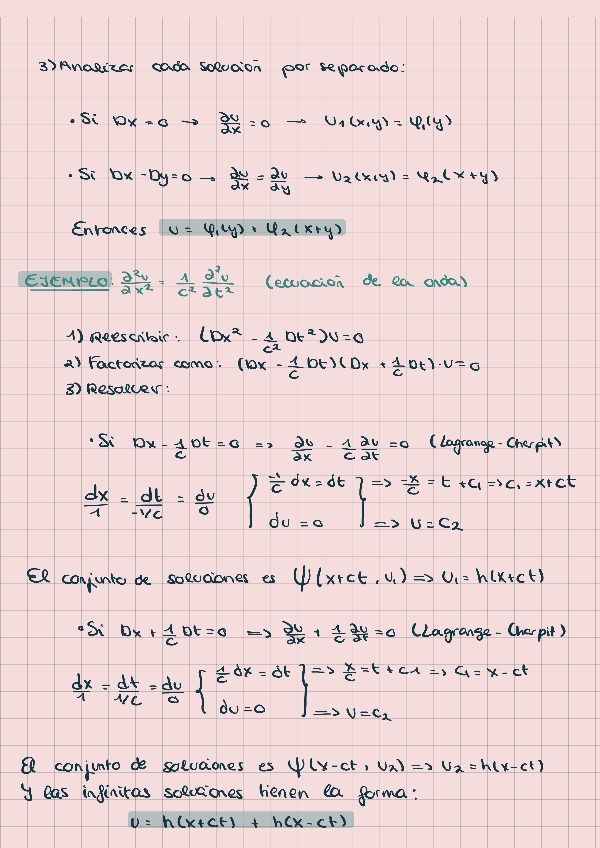 3) Analizar cada solución por separado:
• Si Dx = 0 → ∂u/∂x = 0 → U₁(x,y) = φ₁(y)
• Si Dx - Dy = 0 → ∂u/∂x = ∂u/∂y → U₂(x,y) = φ₂(x+y)
Entonces u = φ₁(y) + φ₂(x+y)
EJEMPLO: ∂²u/∂x² = 1/c² ∂²u/∂t² (ecuación de la onda)
1) Reescribir: (Dx² - 1/c² Dt²)U = 0
2) Factorizar como: (Dx - 1/c Dt)(Dx + 1/c Dt)·U = 0
3) Resolver:
• Si Dx - 1/c Dt = 0 => ∂u/∂x - 1/c ∂u/∂t = 0 (Lagrange - Charpit)
dx/1 = dt/-1/c = du/0 { -1/c dx = dt } => -x/c = t + C₁ => C₁ = x+ct
du = 0 => U = C₂
El conjunto de soluciones es ψ(x+ct, U₁) => U₁ = h(x+ct)
• Si Dx + 1/c Dt = 0 => ∂u/∂x + 1/c ∂u/∂t = 0 (Lagrange - Charpit)
dx/1 = dt/1/c = du/0 { 1/c dx = dt } => x/c = t + C1 => C₁ = x - ct
du = 0 => U = C₂
El conjunto de soluciones es ψ(x-ct, U₂) => U₂ = h(x-ct)
Y las infinitas soluciones tienen la forma:
U = h(x+ct) + h(x-ct)